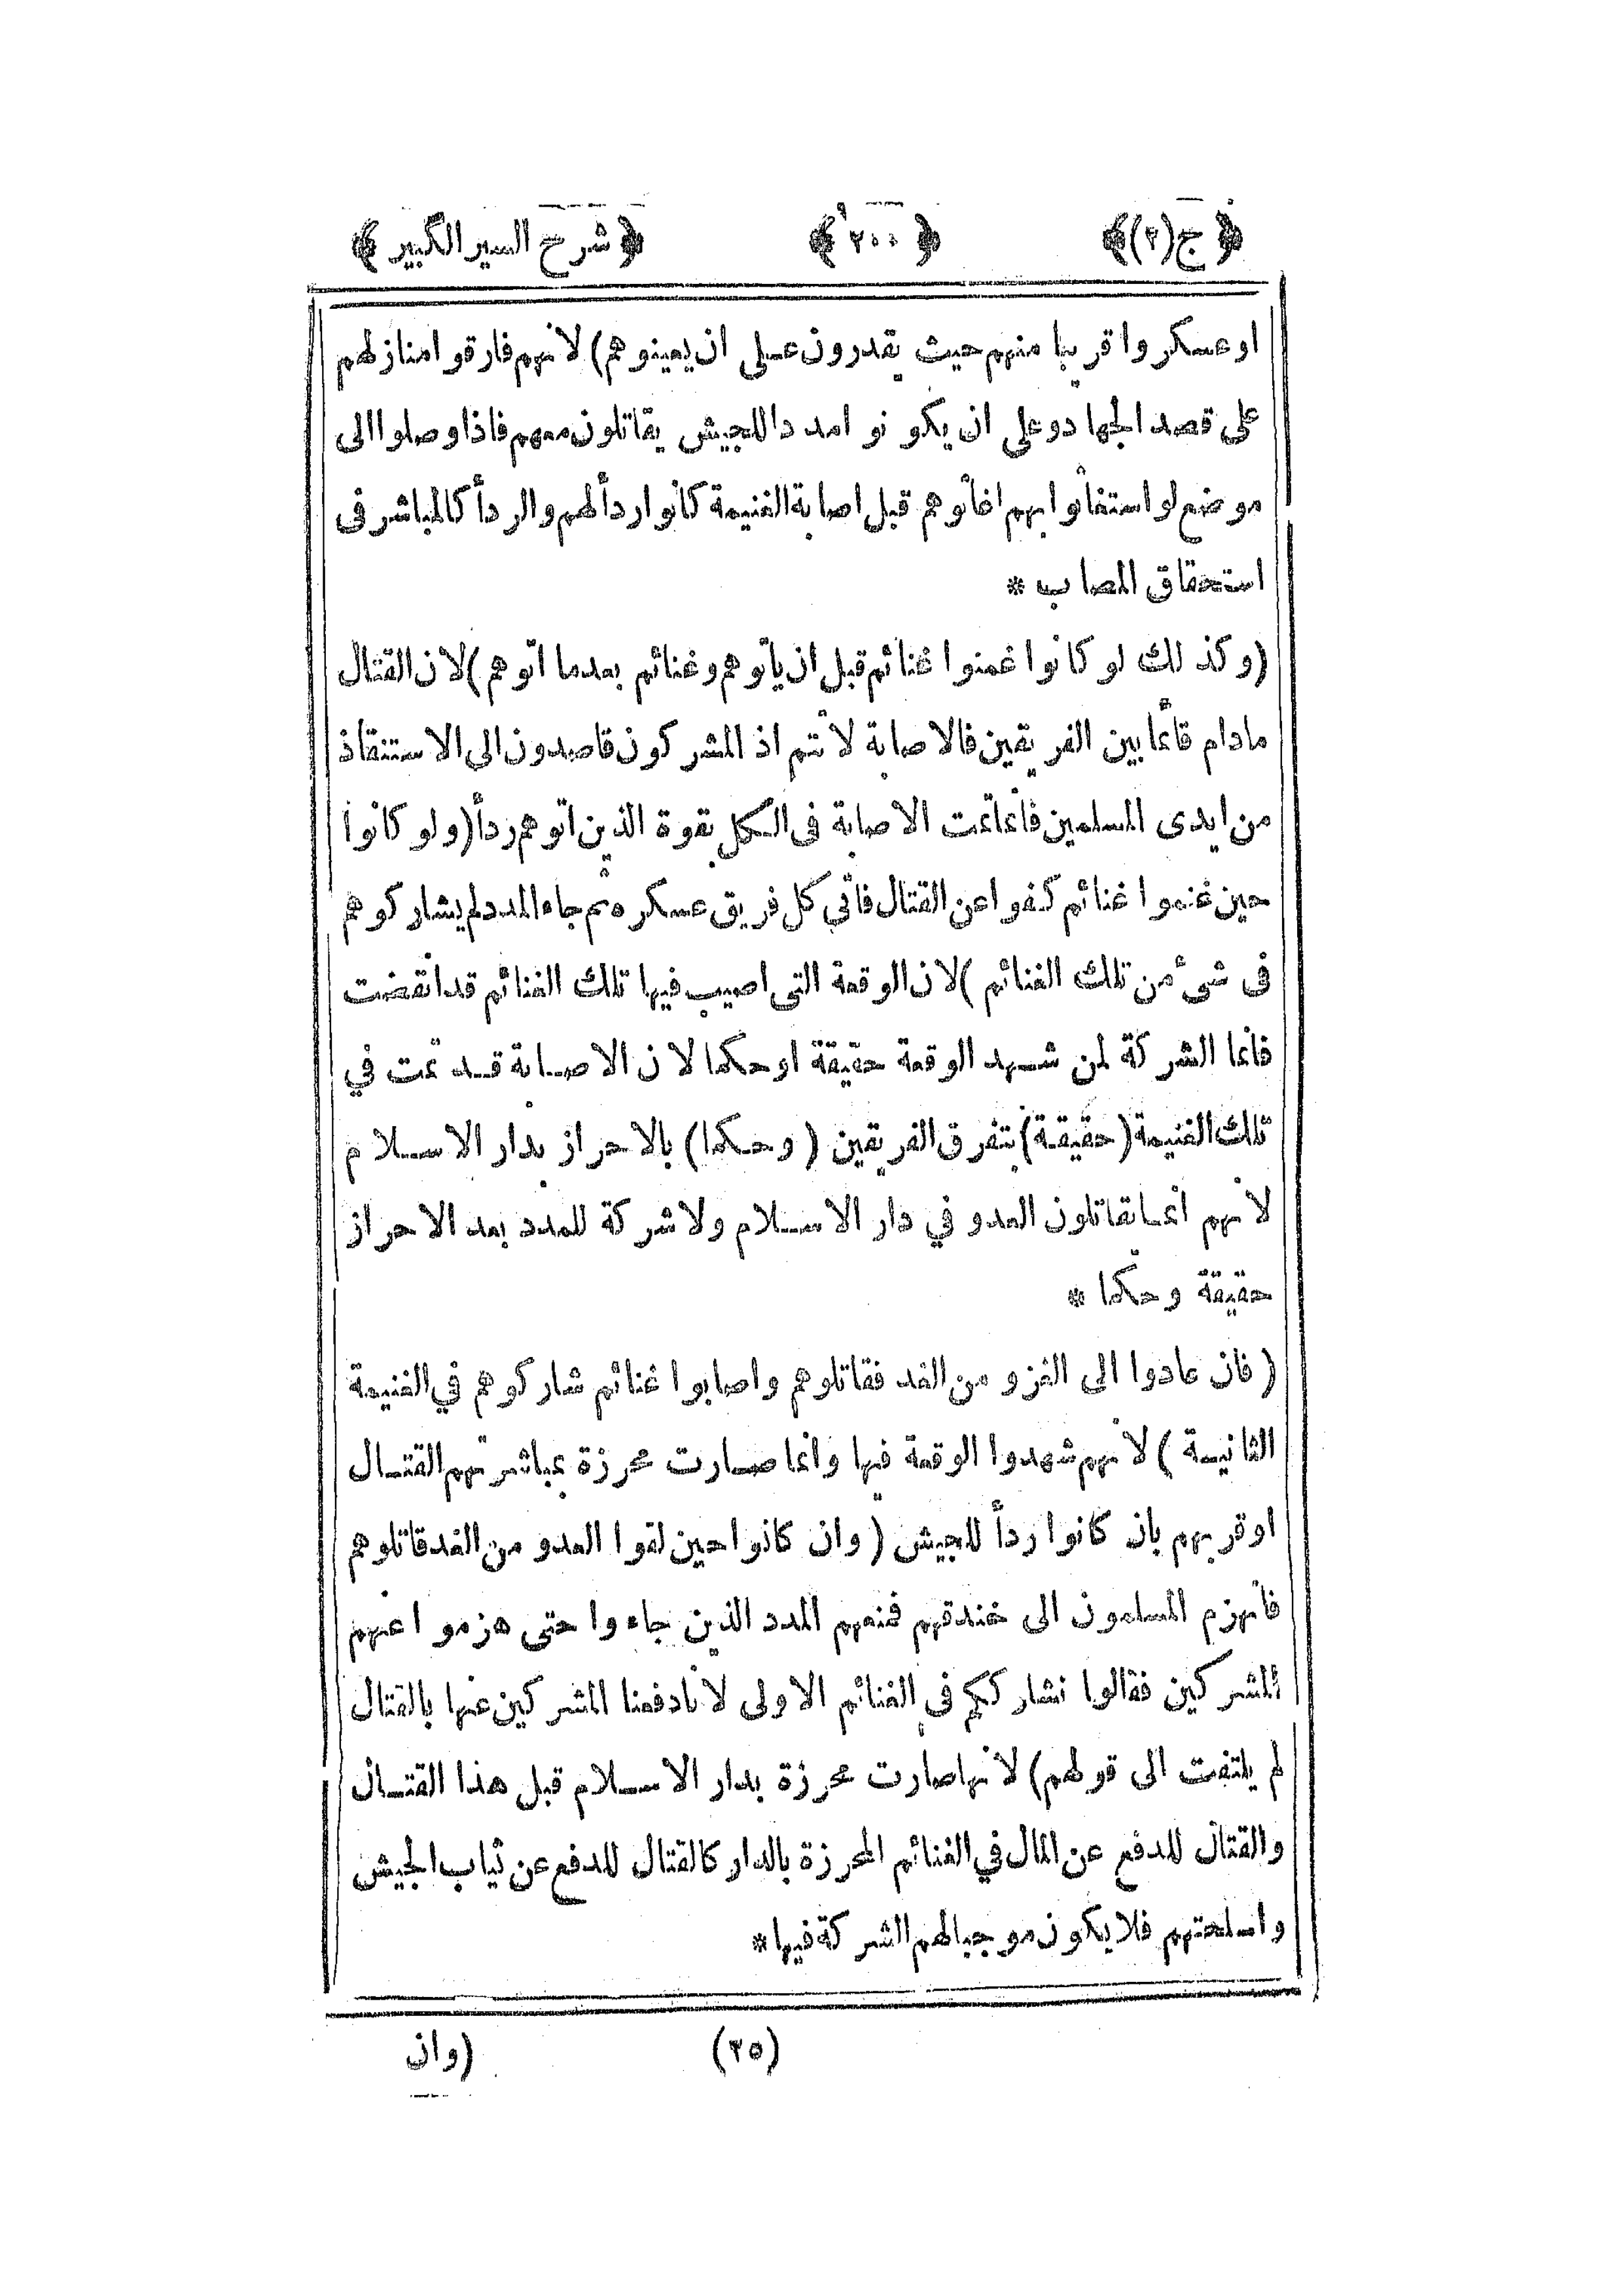 ﴿ ج (٢) ﴾ ﴿ ٢٠٠ ﴾ ﴿ شرح السير الكبير ﴾
او عسكروا قريبا منهم حيث يقدرون على ان يعينوهم) لانهم فارقوا منازلهم
على قصد الجهاد وعلى ان يكونوا مددا للجيش يقاتلون معهم فاذا وصلوا الى
موضع لو استغاثوا بهم اغاثوهم قبل اصابة الغنيمة كانوا ردأ لهم والردأ كالمباشر فى
استحقاق المصاب *
(وكذلك لو كانوا غنموا غنائم قبل ان يأتوهم وغنائم بعدما اتوهم) لان القتال
مادام قائما بين الفريقين فالاصابة لا تتم اذ المشركون قاصدون الى الاستنقاذ
من ايدى المسلمين فانما تمت الاصابة فى الكل بقوة الذين اتوهم ردأ (ولو كانوا
حين غنموا غنائم كفوا عن القتال فاتى كل فريق عسكره ثم جاء المدد لم يشاركوهم
فى شىء من تلك الغنائم) لان الوقعة التى اصيب فيها تلك الغنائم قد انقضت
فانما الشركة لمن شهد الوقعة حقيقة او حكما لان الاصابة قد تمت في
تلك الغنيمة (حقيقة) بتفرق الفريقين (وحكما) بالاحراز بدار الاسلام
لانهم انما يقاتلون العدو في دار الاسلام ولا شركة للمدد بعد الاحراز
حقيقة وحكما *
(فان عادوا الى الغزو من الغد فقاتلوهم واصابوا غنائم شاركوهم في الغنيمة
الثانية) لانهم شهدوا الوقعة فيها وانما صارت محرزة بمباشرتهم القتال
او قربهم بان كانوا ردأ للجيش (وان كانوا حين لقوا العدو من الغد قاتلوهم
فانهزم المسلمون الى خندقهم فمنعهم المدد الذين جاءوا حتى هزموا عنهم
المشركين فقالوا نشارككم في الغنائم الاولى لانا دفعنا المشركين عنها بالقتال
لم يلتفت الى قولهم) لانها صارت محرزة بدار الاسلام قبل هذا القتال
والقتال للدفع عن المال في الغنائم المحرزة بالدار كالقتال للدفع عن ثياب الجيش
واسلحتهم فلا يكون موجبا لهم الشركة فيها *
(٢٥) (وان